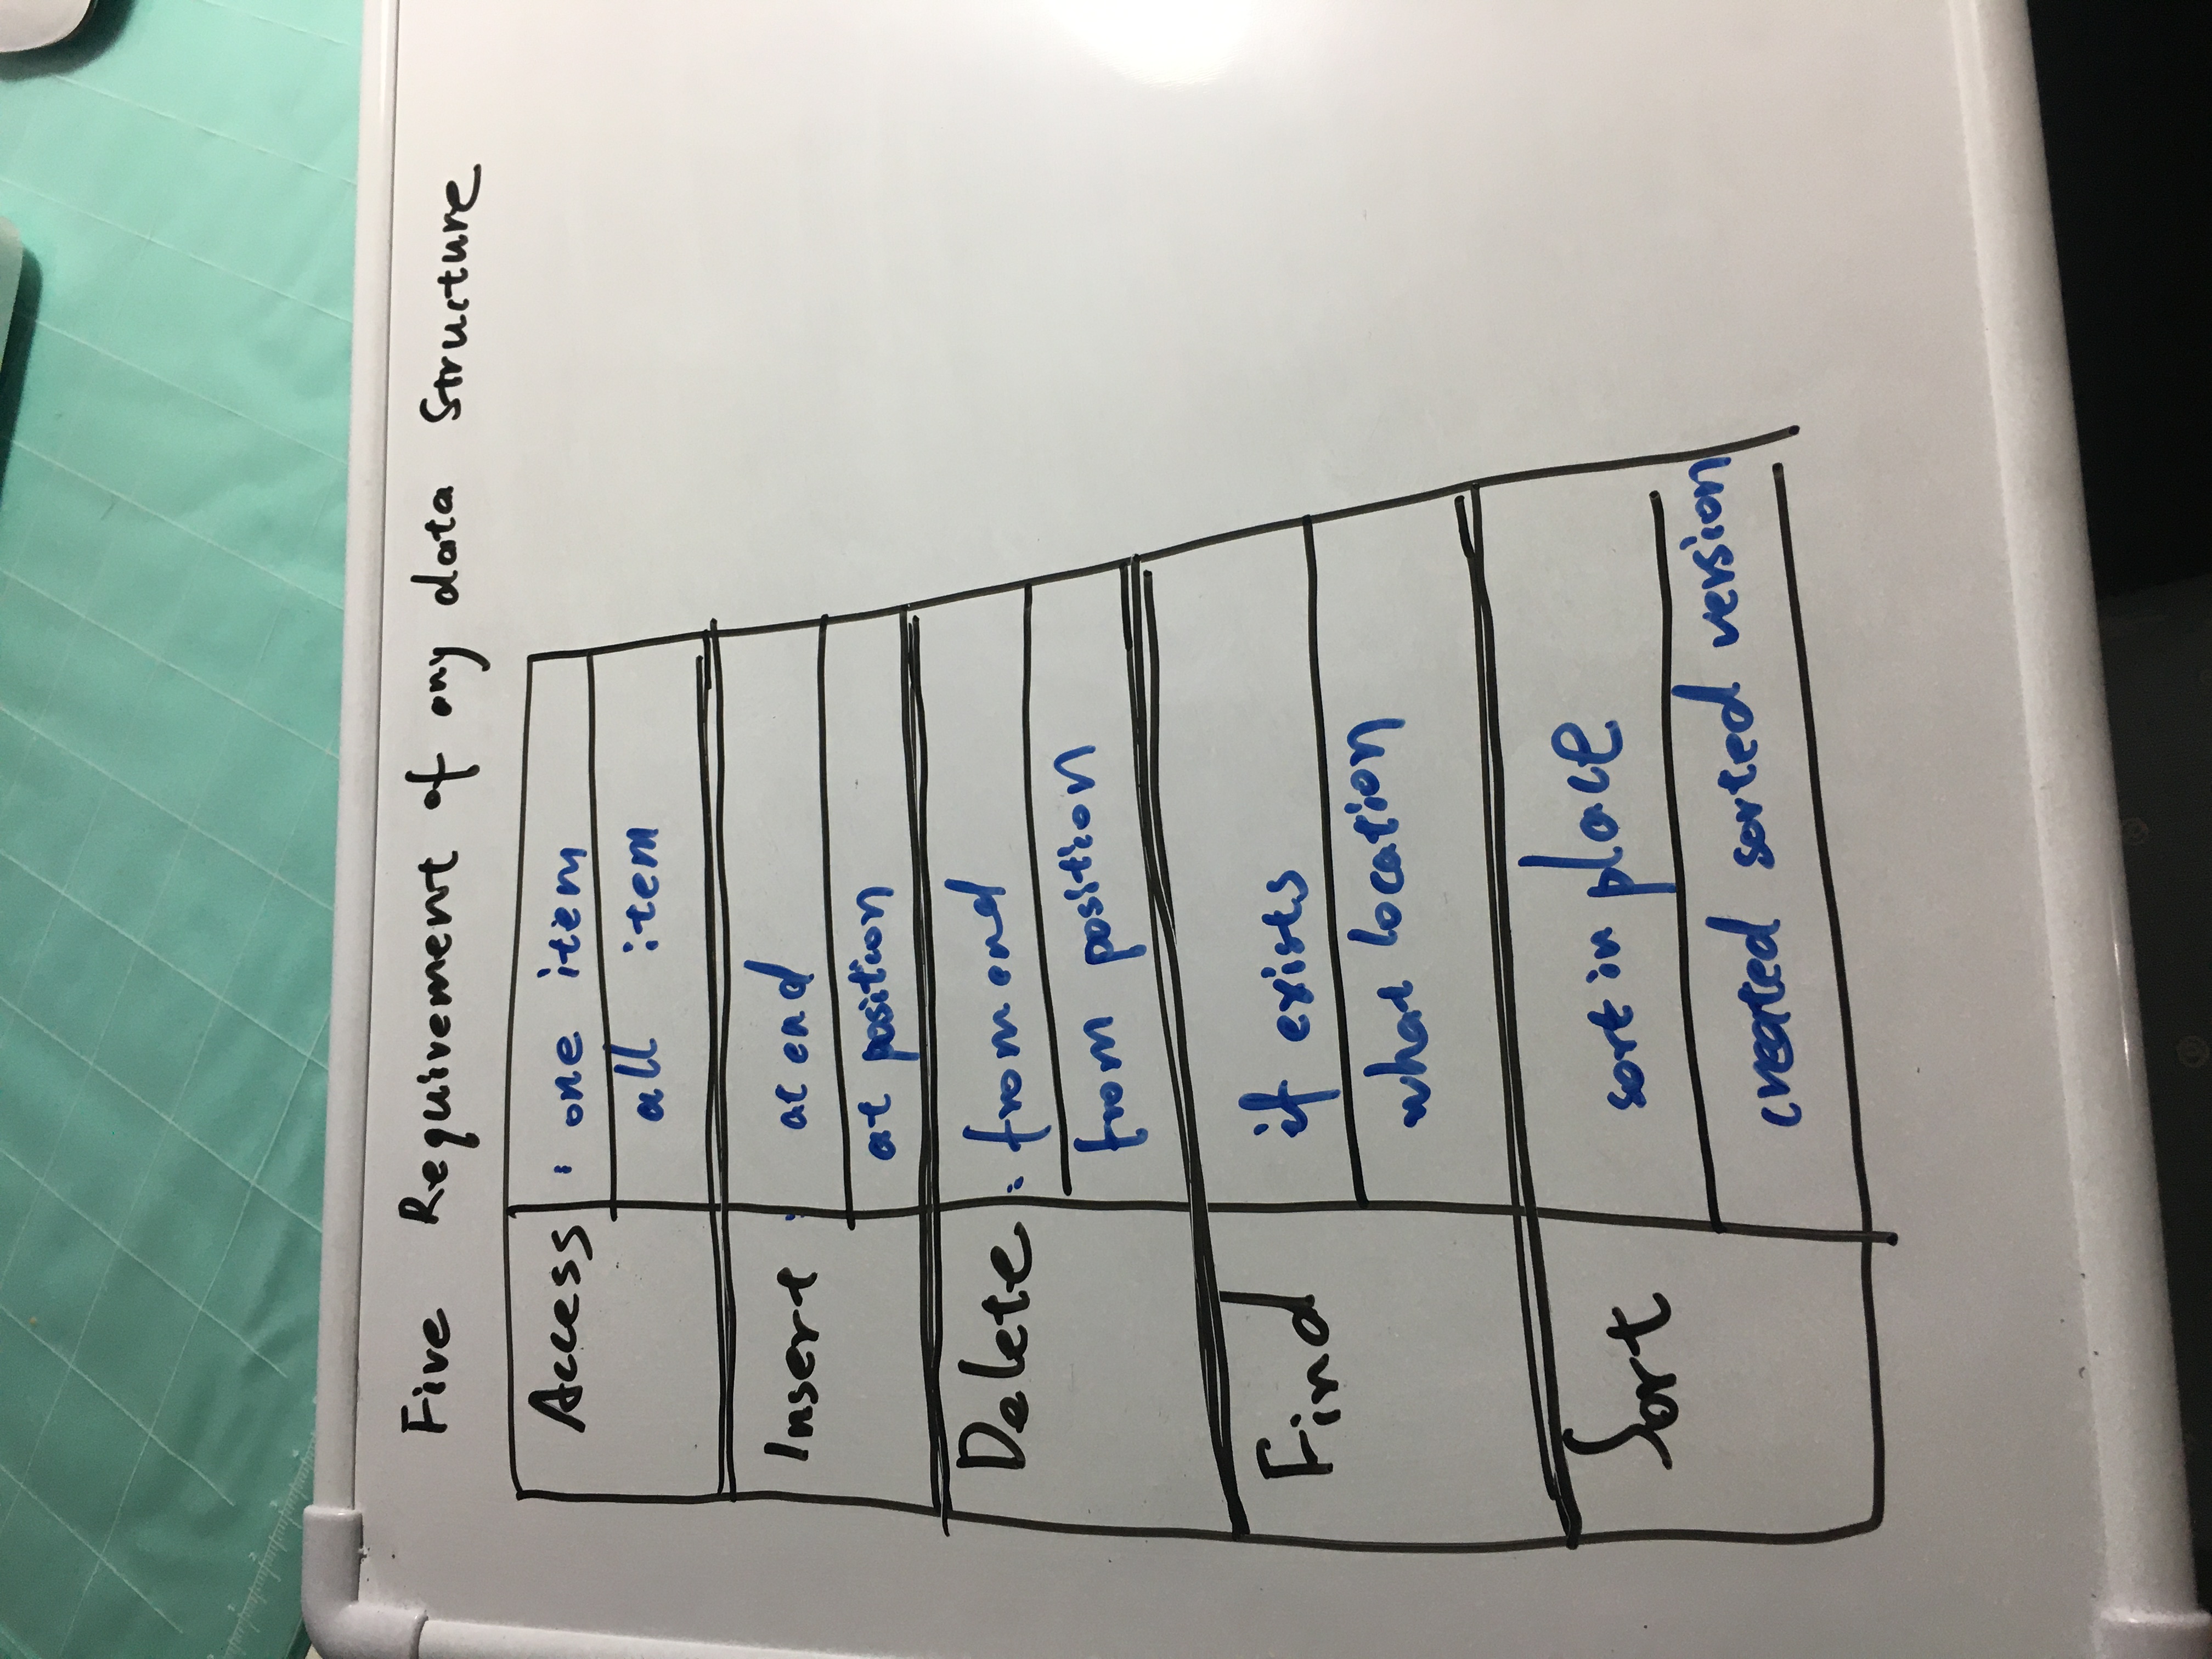 Five Requirement of any data Structure
Access : one item
all item
Insert : at end
at position
Delete : from end
from position
Find if exists
what location
Sort sort in place
created sorted version